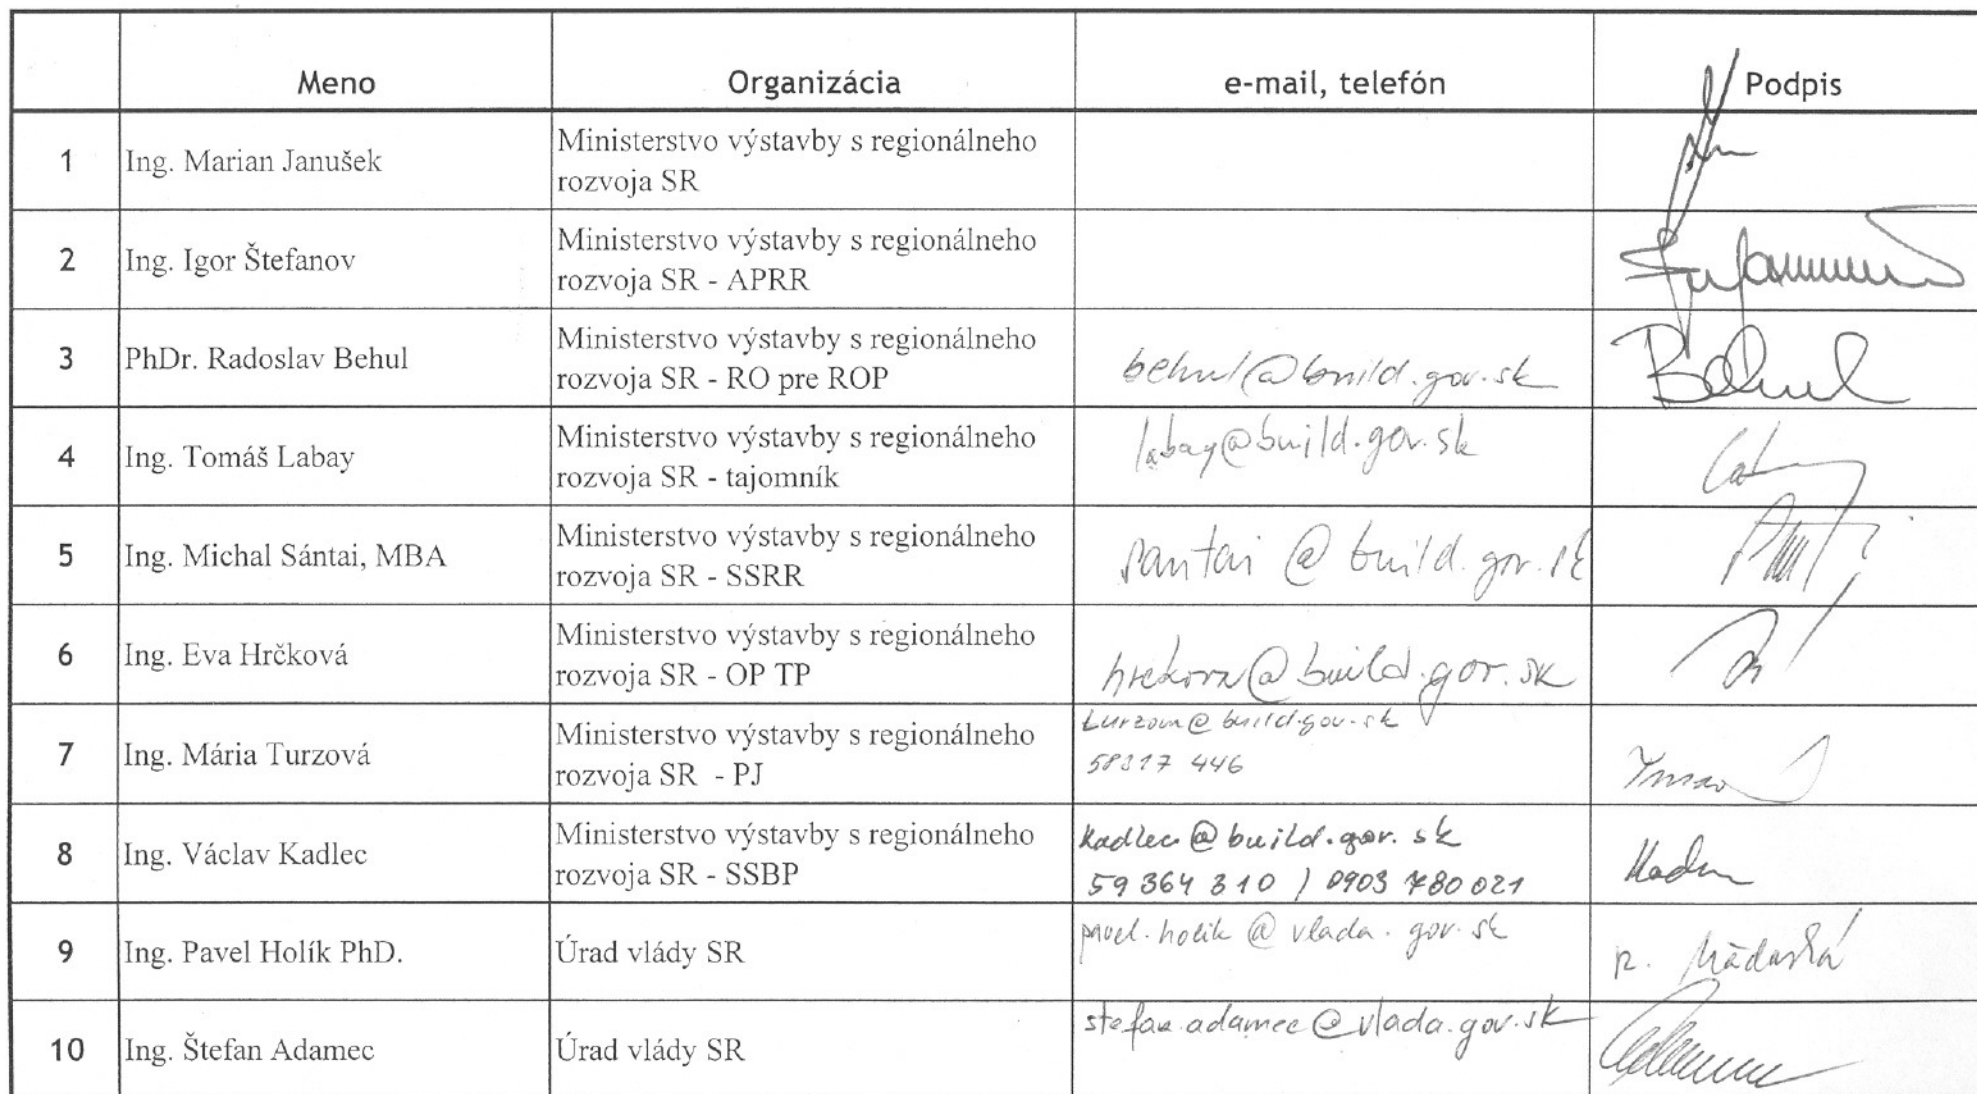 Meno Organizácia e-mail, telefón Podpis
1 Ing. Marian Janušek Ministerstvo výstavby s regionálneho
rozvoja SR
2 Ing. Igor Štefanov Ministerstvo výstavby s regionálneho
rozvoja SR - APRR
3 PhDr. Radoslav Behul Ministerstvo výstavby s regionálneho
rozvoja SR - RO pre ROP behul@build.gov.sk Behul
4 Ing. Tomáš Labay Ministerstvo výstavby s regionálneho
rozvoja SR - tajomník labay@build.gov.sk
5 Ing. Michal Sántai, MBA Ministerstvo výstavby s regionálneho
rozvoja SR - SSRR santai@build.gov.sk
6 Ing. Eva Hrčková Ministerstvo výstavby s regionálneho
rozvoja SR - OP TP hrckova@build.gov.sk
7 Ing. Mária Turzová Ministerstvo výstavby s regionálneho turzova@build.gov.sk
rozvoja SR - PJ 58317 446
8 Ing. Václav Kadlec Ministerstvo výstavby s regionálneho kadlec@build.gov.sk
rozvoja SR - SSBP 59 364 310 / 0903 780 021
9 Ing. Pavel Holík PhD. Úrad vlády SR pavel.holik@vlada.gov.sk
10 Ing. Štefan Adamec Úrad vlády SR stefan.adamec@vlada.gov.sk